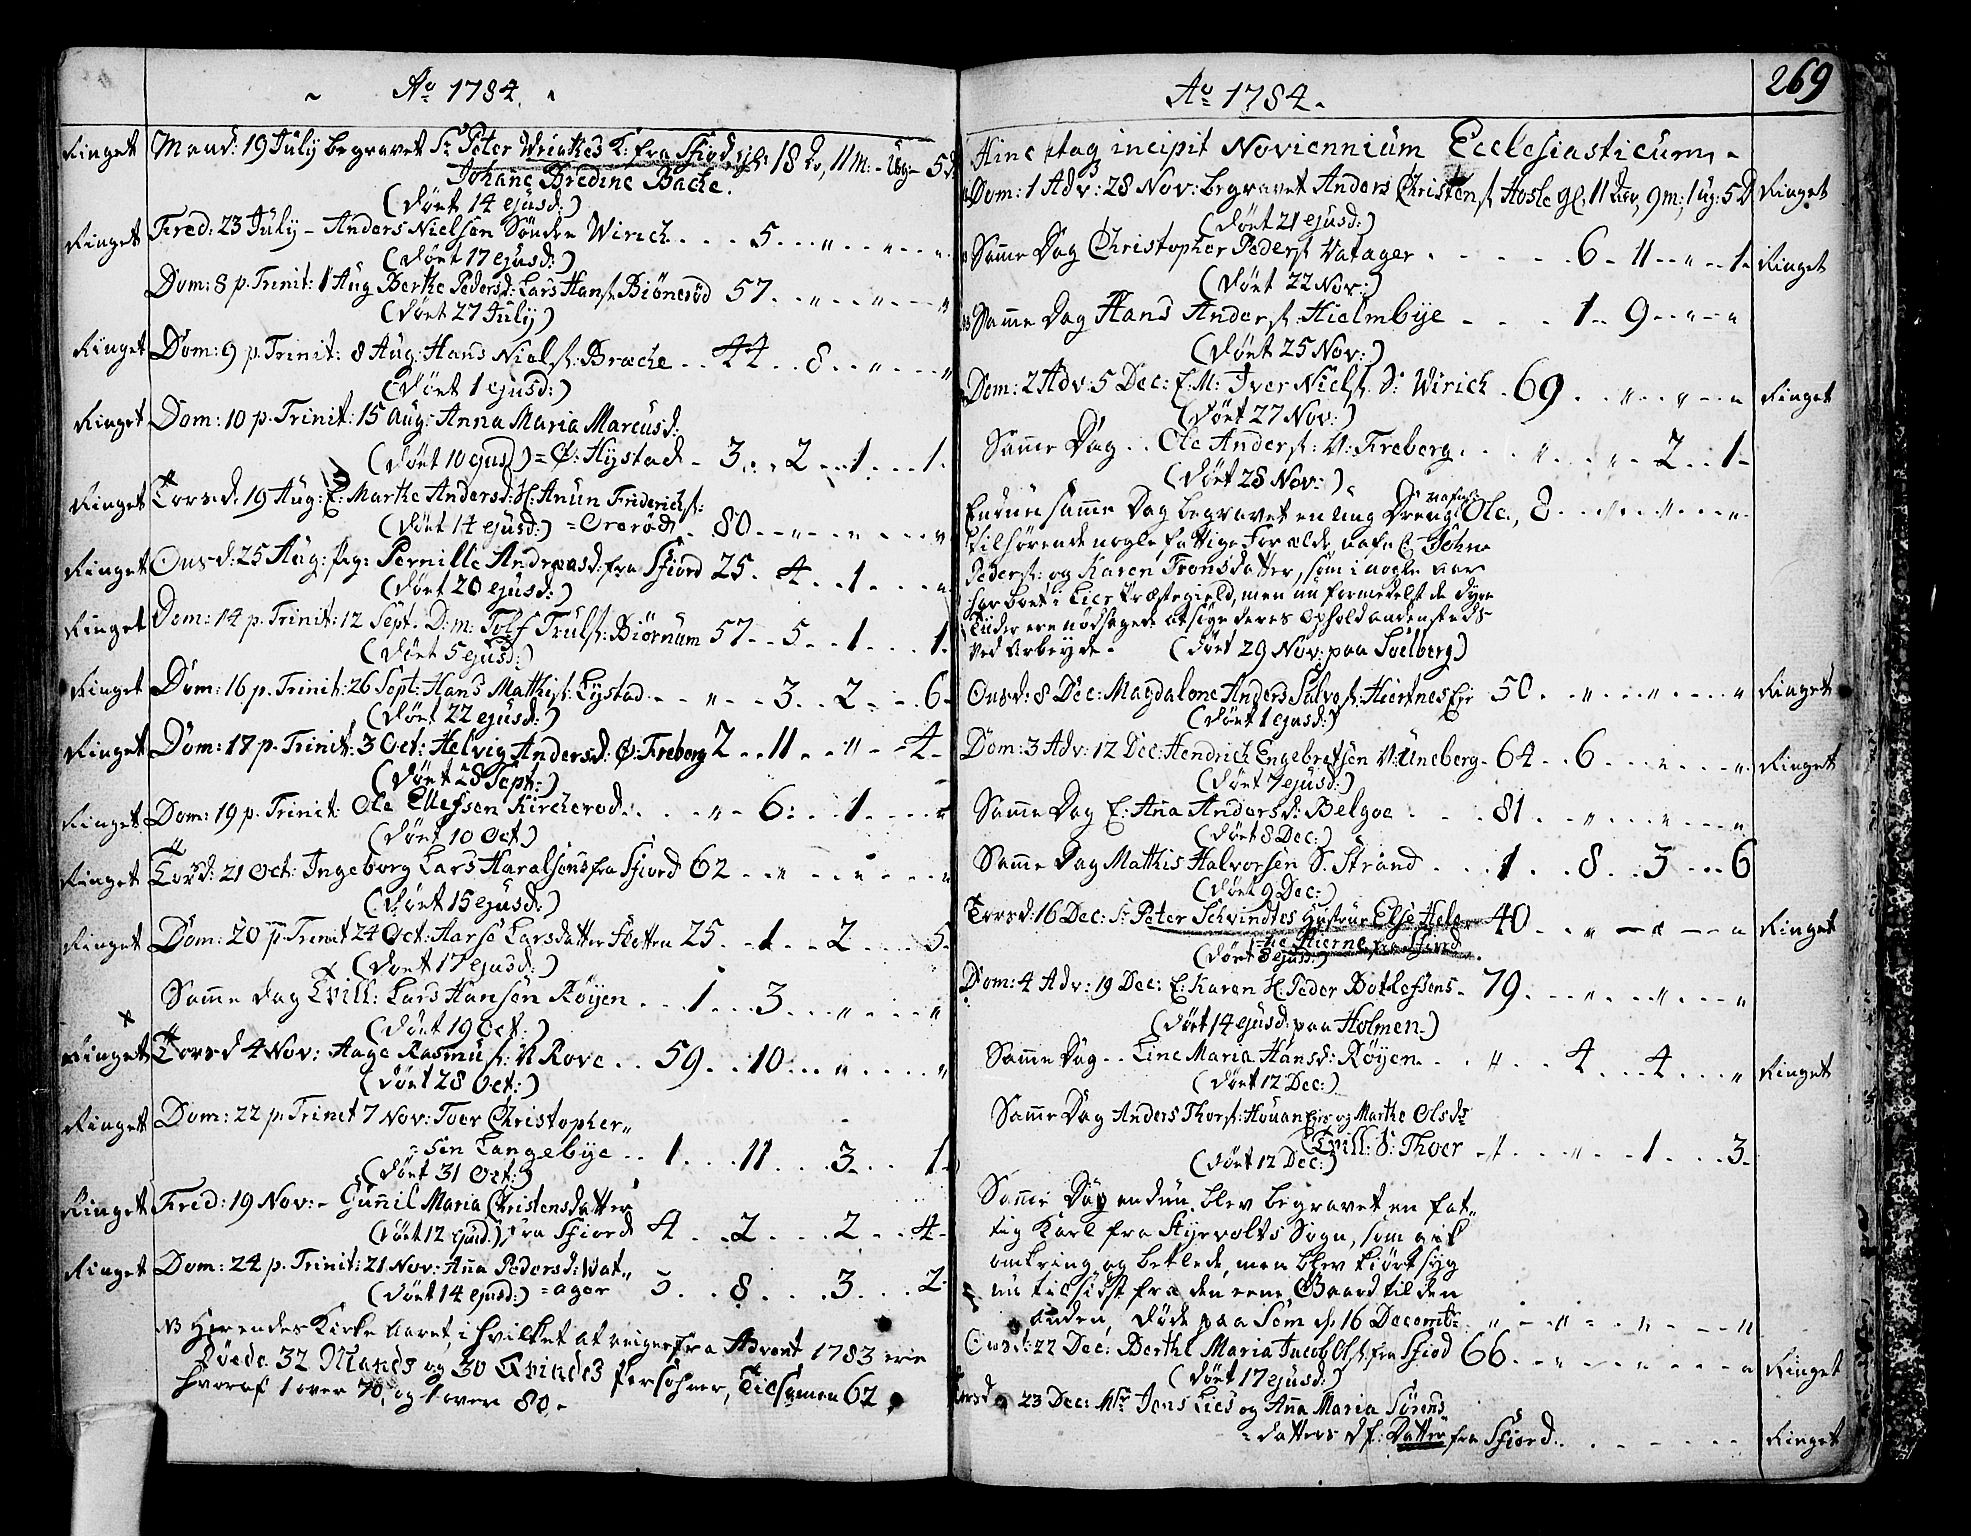 Ao 1784.
Ringet Mand: 19 July begravet Sr Peter Wriakes K: fra Sfiord gl: 18 År, 11 m: - Ug - 5 d.
Johane Bredine Backe.
(døet 14 ejusd:)
Ringet Fred: 23 July - Anders Nielsen Søndre Wirich . . . 5 . . " . . " . . "
(døet 17 ejusd:)
Dom: 8 p. Trinit: 1 Aug Berthe Pedersd: Lars Hans: Biønerød 57 . . " . . " . . "
(døet 27 July)
Ringet Dom: 9 p. Trinit: 8 Aug: Hans Niels: Breche . . 44 . . 8 . . " . . "
(døet 1 ejusd:)
Ringet Dom: 10 p. Trinit: 15 Aug: Anna Maria Marcusd:
(døet 10 ejusd) = Ø: Hystad - 3 . . 2 . . 1 . . 1.
Ringet Torsd: 19 Aug: E: Marthe Andersd: H: Anun Friderichs:
(døet 14 ejusd:) = Orerød . . 80 . . " . . " . . "
Ringet Onsd: 25 Aug: Pig: Pernille Andreasd: fra Sfiord 25 . . 4 . . 1 . . "
(døet 20 ejusd:)
Ringet Dom: 14 p. Trinit: 12 Sept. D: m: Tolf Truls: Biørnum 57 . . 5 . . 1 . . 1.
(døet 5 ejusd:)
Ringet Dom: 16 p. Trinit: 26 Sept: Hans Mathis: Lystad . . " . . 3 . . 2 . . 6.
(døet 22 ejusd:)
Ringet Dom: 17 p. Trinit: 3 Oct: Helvig Andersd: Ø: Freberg 2 . . 11 . . " . . 4.
(døet 28 Sept:)
Ringet Dom: 19 p. Trinit: Ole Ellefsen Kircherød . . " . . 6 . . 1 . . "
(døet 10 Oct)
Ringet Torsd: 21 Oct: Ingeborg Lars Haralsens fra Sfiord 62 . . " . . " . . "
(døet 15 ejusd:)
Ringet Dom: 20 p. Trinit 24 Oct: Aarse Larsdatter Sketten 25 . . 1 . . 2 . . 5.
(døet 17 ejusd:)
Samme dag Tvill: Lars Hansen Røyen . . 1 . . 3 . . " . . "
(døet 19 Oct:)
Ringet Torsd 4 Nov: Aage Rasmus: N Rove . . 59 . . 10 . . " . . "
(døet 28 Oct:)
Ringet Dom: 22 p. Trinit 7 Nov: Toer Christopher"
=sen Langebye . . 1 . . 11 . . 3 . . 1.
(døet 31 Oct:)
Ringet Fred: 19 Nov: - Gunnil Maria Christensdatter
(døet 12 ejusd:) fra Sfiord 4 . . 2 . . 2 . . 4.
Ringet Dom: 24 p. Trinit: 21 Nov: Anna Pedersd: Wat"
(døet 14 ejusd:) = ager 5 . . 8 . . 3 . . 2.
NB Herendes Kirke Aaret, i hvilket at reigne fra Advent 1783 ere
Døede 32 Mands og 30 Qvindes Persohner, Tilsamen 62,
hvoraf 1 over 70, og 1 over 80.
Ao 1784.
269
Hinc incipit Noviennium Ecclesiasticum.
Dom: 1 Adv: 28 Nov: begravet Anders Christens: Hosle gl. 11 Aar, 9 m: 1 ug: 5 D Ringet
(døet 21 ejusd:)
Samme Dag Christopher Peders: Vatager . . . 6 - 11 . . " . . 1. Ringet
(døet 22 Nov:)
Samme Dag Hans Anders: Hielmbye . . . 1 . . 9 . . " . . "
(døet 25 Nov:)
Dom: 2 Adv: 5 Dec: E. M: Iver Niels: S: Wirich . 69 . . " . . " . . " Ringet
(døet 27 Nov:)
Samme Dag . . Ole Anders: N: Freberg . . " . . " . . 2 . . 1.
(døet 28 Nov:)
Endnu samme Dag begravet en ung Dreng Ole, 8 . . " . . " . . "
tilhørende nogle fattige Forælde, nafnl John
Peders: og Karen Tronsdatter, som i nogle Aar
har boet i Lier Præstegield, men nu formedelst de dyre
Tiider ere nødsagede at søge deres Ophold andensteds
ved Arbeyde. (døet 29 Nov: paa Solberg)
Onsd: 8 Dec: Magdalone Anders Salvos: Hiertnes Eje 50 . . " . . " . . " Ringet
(døet 1 ejusd:)
Dom: 3 Adv: 12 Dec: Hendrich Engebretsen N: Uneberg . 64 . . 6 . . " . . " Ringet
(døet 7 ejusd:)
Samme Dag E: Ana Andersd: Belgoe . . . 81 . . " . . " . . "
(døet 8 Dec:)
Samme Dag Mathis Halvorsen S. Strand . . . 1 . . 8 . . 3 . . 6
(døet 9 Dec:)
Torsd: 16 Dec: Sr Peter Schvindtes Hustrue Else Hele- 40 . . " . . " . . " Ringet
=ne Hierne fra Sfiord
(døet 8 ejusd:)
Dom: 4 Adv: 19 Dec: E. Karen H. Peder Botlefsens . 79 . . " . . " . . "
(døet 14 ejusd: paa Holmen.)
Samme Dag . . Line Maria Hansd: Røyen . . " . . 4 . . 4 . . " Ringet
(døet 12 Dec:)
Samme Dag Anders Thors: Houan Eje og Marthe Olsds
Tvill: S: Thoer . . " . . " . . 1 . . 3.
(døet 12 Dec:)
Samme Dag endnu blev begravet en fat"
tig Karl fra Styrvolts Sogn, som gik
omkring og betlede, men blev kiørt syg
nu tilsidst fra den eene Gaard til den
anden, døde paa Sem d. 16 Decembr . . " . . " . . " . . "
Onsd: 22 Dec: Berthe Maria Jacob Ols: fra Sfiod 66 . . " . . " . . " Ringet
(døet 17 ejusd:)
Torsd 23 Dec: Mr Jens Lies og Anna Maria Sørens
=datters df: Datter fra Sfiord . . . Ringet